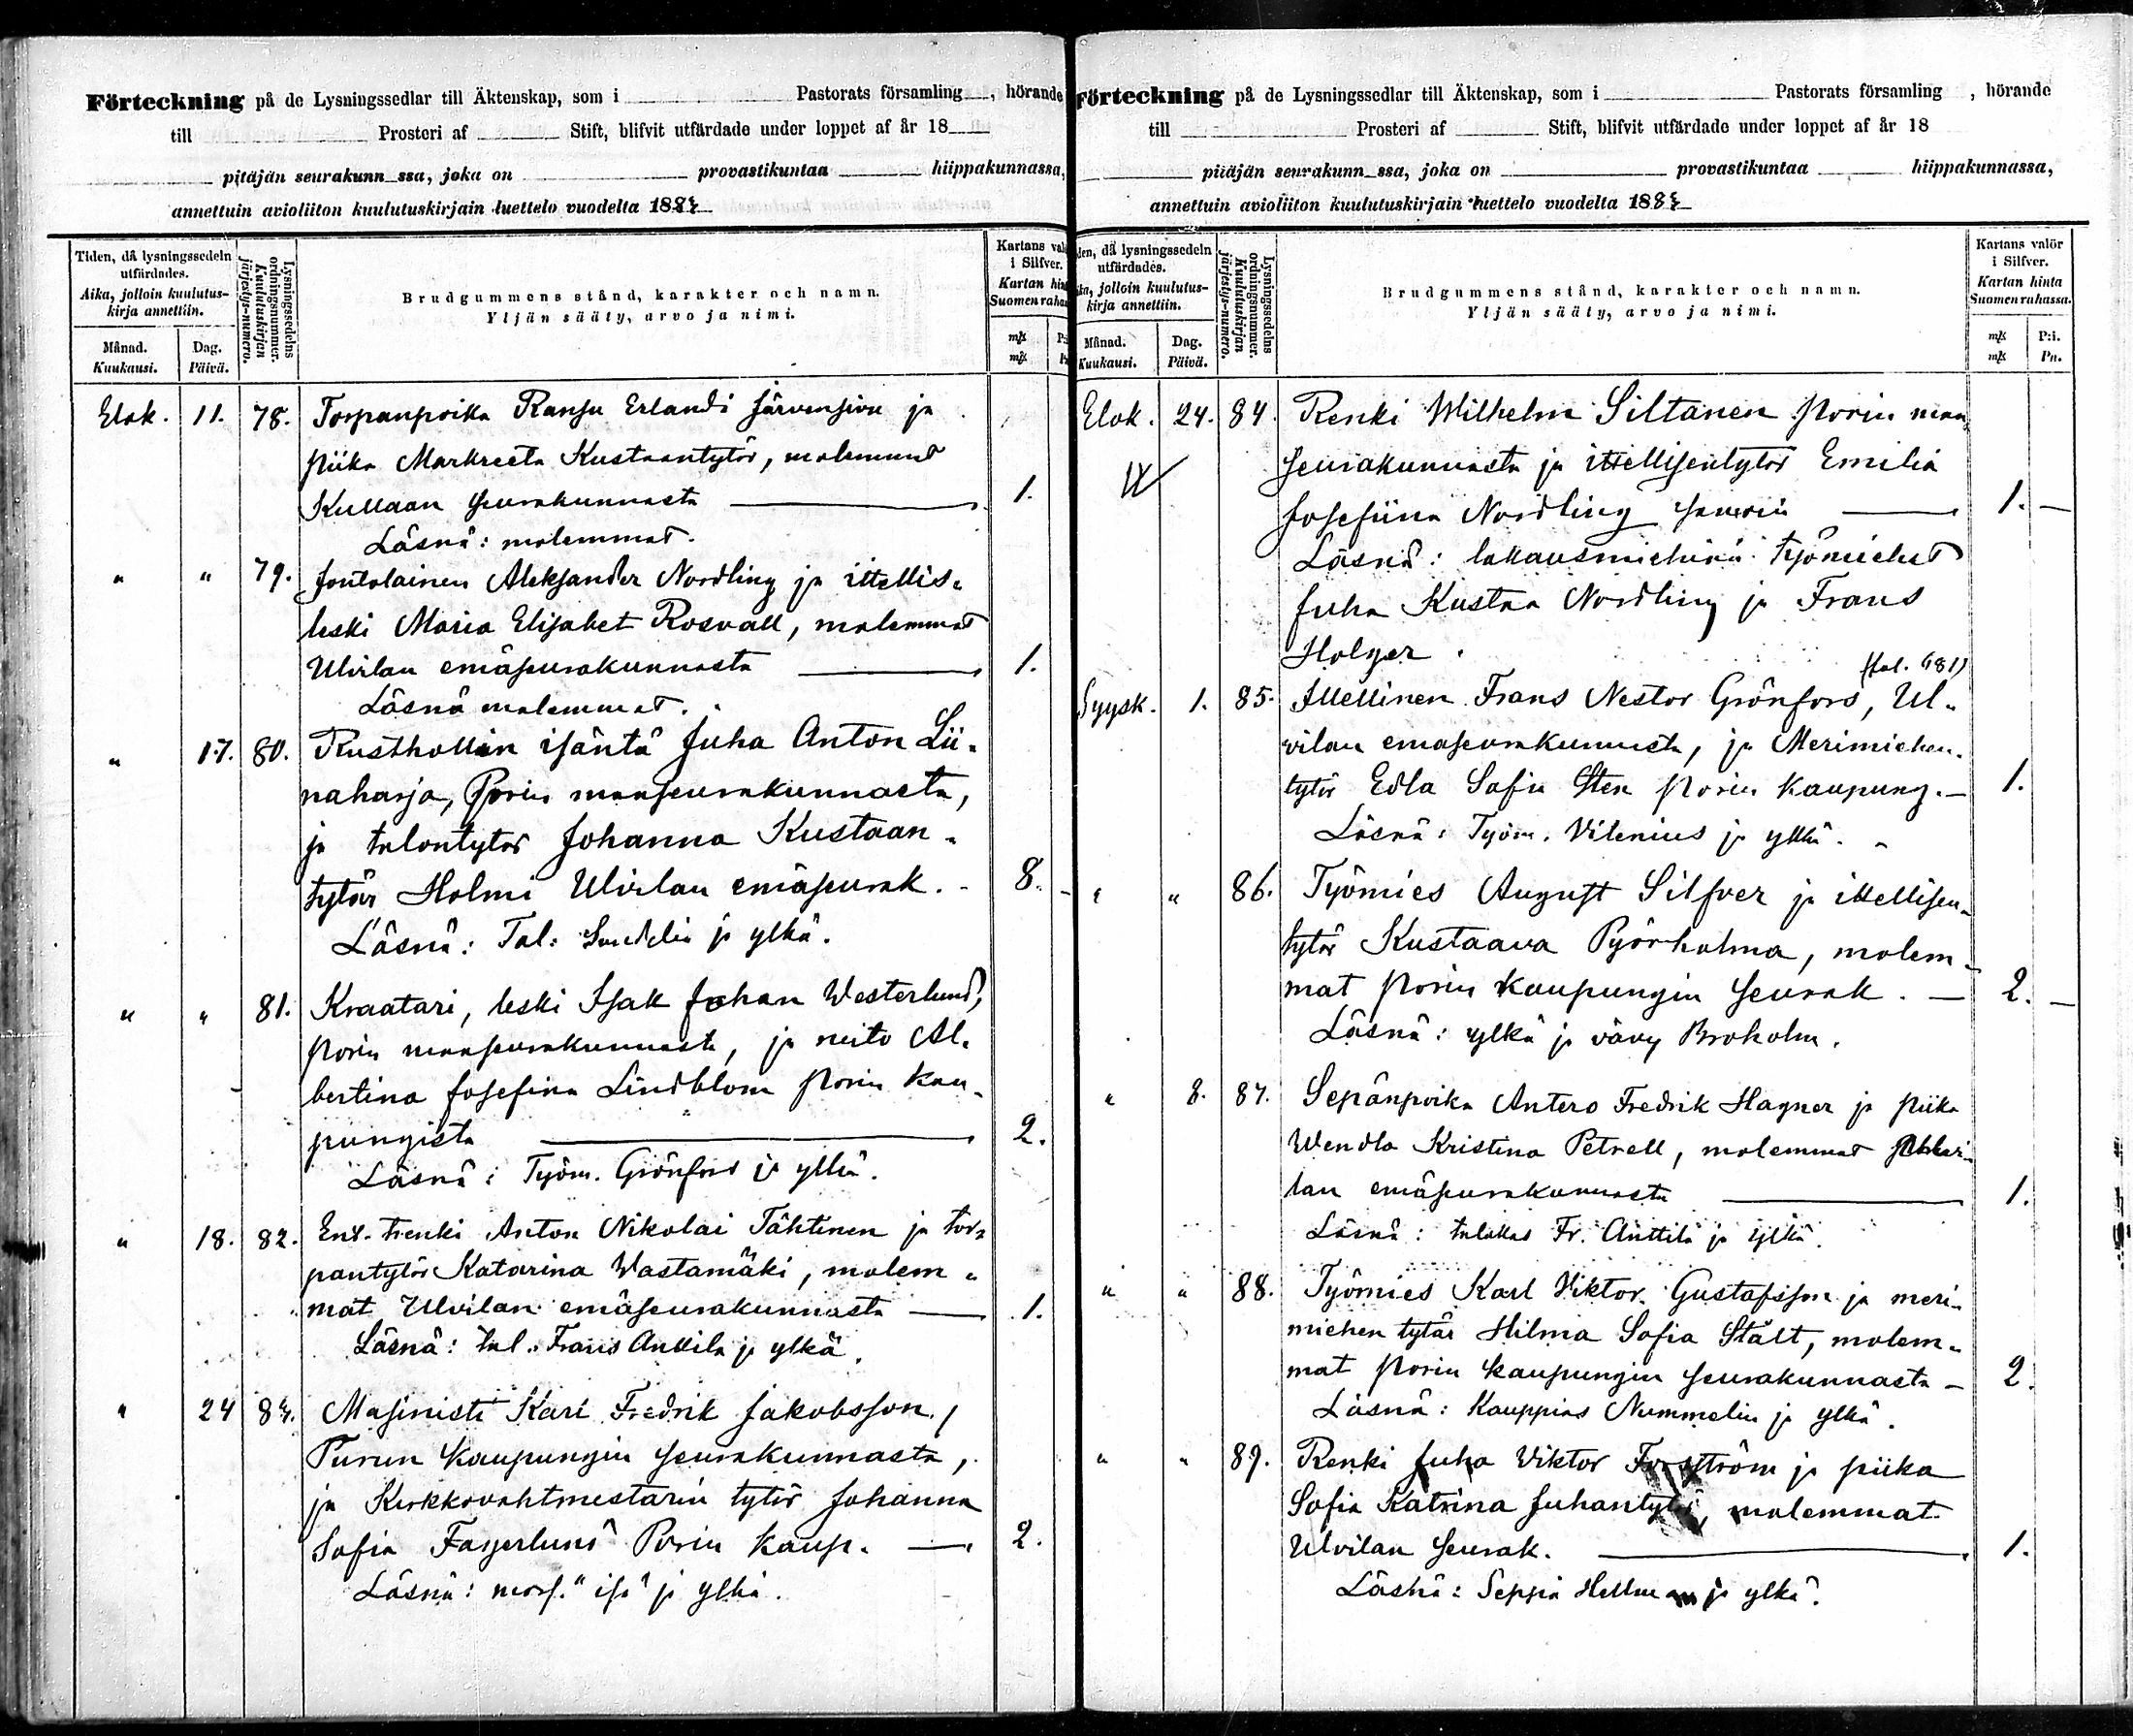 Förteckning på de Lysningssedlar till Äktenskap, som i Pastorats församling, hörande
till Prosteri af Stift, blifvit utfärdade under loppet af år 18
pitäjän seurakunn ssa, joka on provastikuntaa hiippakunnassa,
annettuin avioliiton kuulutuskirjain luettelo vuodelta 188
Tiden, då lysningssedeln utfärdades.
Aika, jolloin kuulutus-
kirja annettiin.
Månad.
Kuukausi.
Dag.
Päivä.
Lysningssedelns ordningsnummer.
Kuulutuskirjan järjestys-numero.
Brudgummens stånd, karakter och namn.
Yljän sääty, arvo ja nimi.
Kartans val
i Silfver.
Kartan hin
Suomen raha
mk
mk
Elok. 11. 78. Torpanpoika Ransu Erlandi Järvensivu ja
piika Markreeta Kustaantytär, molemmat
Kullaan seurakunnasta 1.
Läsnä: molemmat.
" " 79. Jontolainen Aleksander Nordling ja ittellis-
leski Maria Elisabet Rosvall, molemmat
Ulvilan emäseurakunnasta 1.
Läsnä molemmat.
" 17. 80. Rusthollin isäntä Juha Anton Lii-
naharja, Porin maaseurakunnasta,
ja talontytär Johanna Kustaan-
tytär Holmi Ulvilan emäseurak. - 8. -
Läsnä: Tal: Sundelin ja ylkä.
" " 81. Kraatari, leski Isak Johan Westerlund,
Porin maaseurakunnasta, ja neito Al-
bertina Josefina Lindblom Porin kau-
pungista 2.
Läsnä: Työm. Grönfors ja ylkä.
" 18. 82. Ent. trenki Anton Nikolai Tähtinen ja tor-
pantytär Katarina Wastamäki, molem-
mat Ulvilan emäseurakunnasta 1.
Läsnä: tal. Frans Anttila ja ylkä.
" 24 83. Masinisti Karl Fredrik Jakobsson,
Turun kaupungin seurakunnasta,
ja Kirkkovahtmestarin tytär Johanna
Sofia Fagerlund Porin kaup. 2.
Läsnä: mors. "isä" ja ylkä.
Förteckning på de Lysningssedlar till Äktenskap, som i Pastorats församling, hörande
till Prosteri af Stift, blifvit utfärdade under loppet af år 18
pitäjän seurakunn ssa, joka on provastikuntaa hiippakunnassa,
annettuin avioliiton kuulutuskirjain luettelo vuodelta 188
den, då lysningssedeln
utfärdades.
ka, jolloin kuulutus-
kirja annettiin.
Månad.
Kuukausi.
Dag.
Päivä.
Lysningssedelns ordningsnummer.
Kuulutuskirjan järjestys-numero.
Brudgummens stånd, karakter och namn.
Yljän sääty, arvo ja nimi.
Kartans valör
i Silfver.
Kartan hinta
Suomen rahassa.
mk P:i.
mk Pn.
Elok. 24. 84. Renki Wilhelm Siltanen Porin maa-
seurakunnasta ja ittellisentytär Emilia
Josefiina Nordling 1. -
Läsnä: lakkausmiehinä työmiehet
Juha Kustaa Nordling ja Frans
Holger.
Syysk. 1. 85. Ittellinen Frans Nestor Grönfors, Ul-
vilan emäseurakunnasta, ja Merimiehen-
tytär Edla Sofia Sten Porin kaupung. - 1.
Läsnä: Työm. Vilenius ja ylkä.
" " 86. Työmies August Silfver ja ittellisen-
tytär Kustaava Pyörholma, molem-
mat Porin kaupungin seurak. - 2. -
Läsnä: ylkä ja vävy Broholm.
" 8. 87. Sepänpoika Antero Fredrik Hagner ja piika
Wendla Kristina Petrell, molemmat
lan emäseurakunnasta 1.
Läsnä: talokas Fr. Anttila ja ylkä.
" " 88. Työmies Karl Viktor Gustafsson ja meri-
miehen tytär Hilma Sofia Stålt, molem-
mat Porin kaupungin seurakunnasta - 2.
Läsnä: Kauppias Nummelin ja ylkä.
" " 89. Renki Juha Viktor Forsström ja piika
Sofia Katrina Juhantytär, molemmat
Ulvilan seurak. 1.
Läsnä: Seppä Hellman ja ylkä.